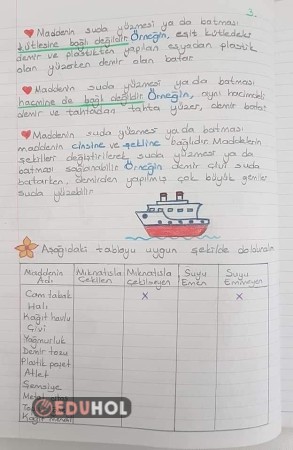 3.
Maddenin suda yüzmesi ya da batması
kütlesine bağlı değildir. Örneğin, eşit kütledeki
demir ve plastikten yapılan eşyadan plastik
olan yüzerken demir olan batar.
Maddenin suda yüzmesi ya da batması
hacmine de bağlı değildir. Örneğin, aynı hacimdeki
demir ve tahtadan tahta yüzer, demir batar.
Maddenin suda yüzmesi ya da batması
maddenin cinsine ve şekline bağlıdır. Maddelerin
şekilleri değiştirilerek suda yüzmesi ya da
batması sağlanabilir. Örneğin demir çivi suda
batarken, demirden yapılmış çok büyük gemiler
suda yüzebilir.
Aşağıdaki tabloyu uygun şekilde dolduralım
Maddenin Adı Mıknatısla Çekilen Mıknatısla Çekilmeyen Suyu Emen Suyu Emmeyen
Cam tabak X X
Halı
Kağıt havlu
Çivi
Yağmurluk
Demir tozu
Plastik poşet
Atlet
Şemsiye
EDUHOL